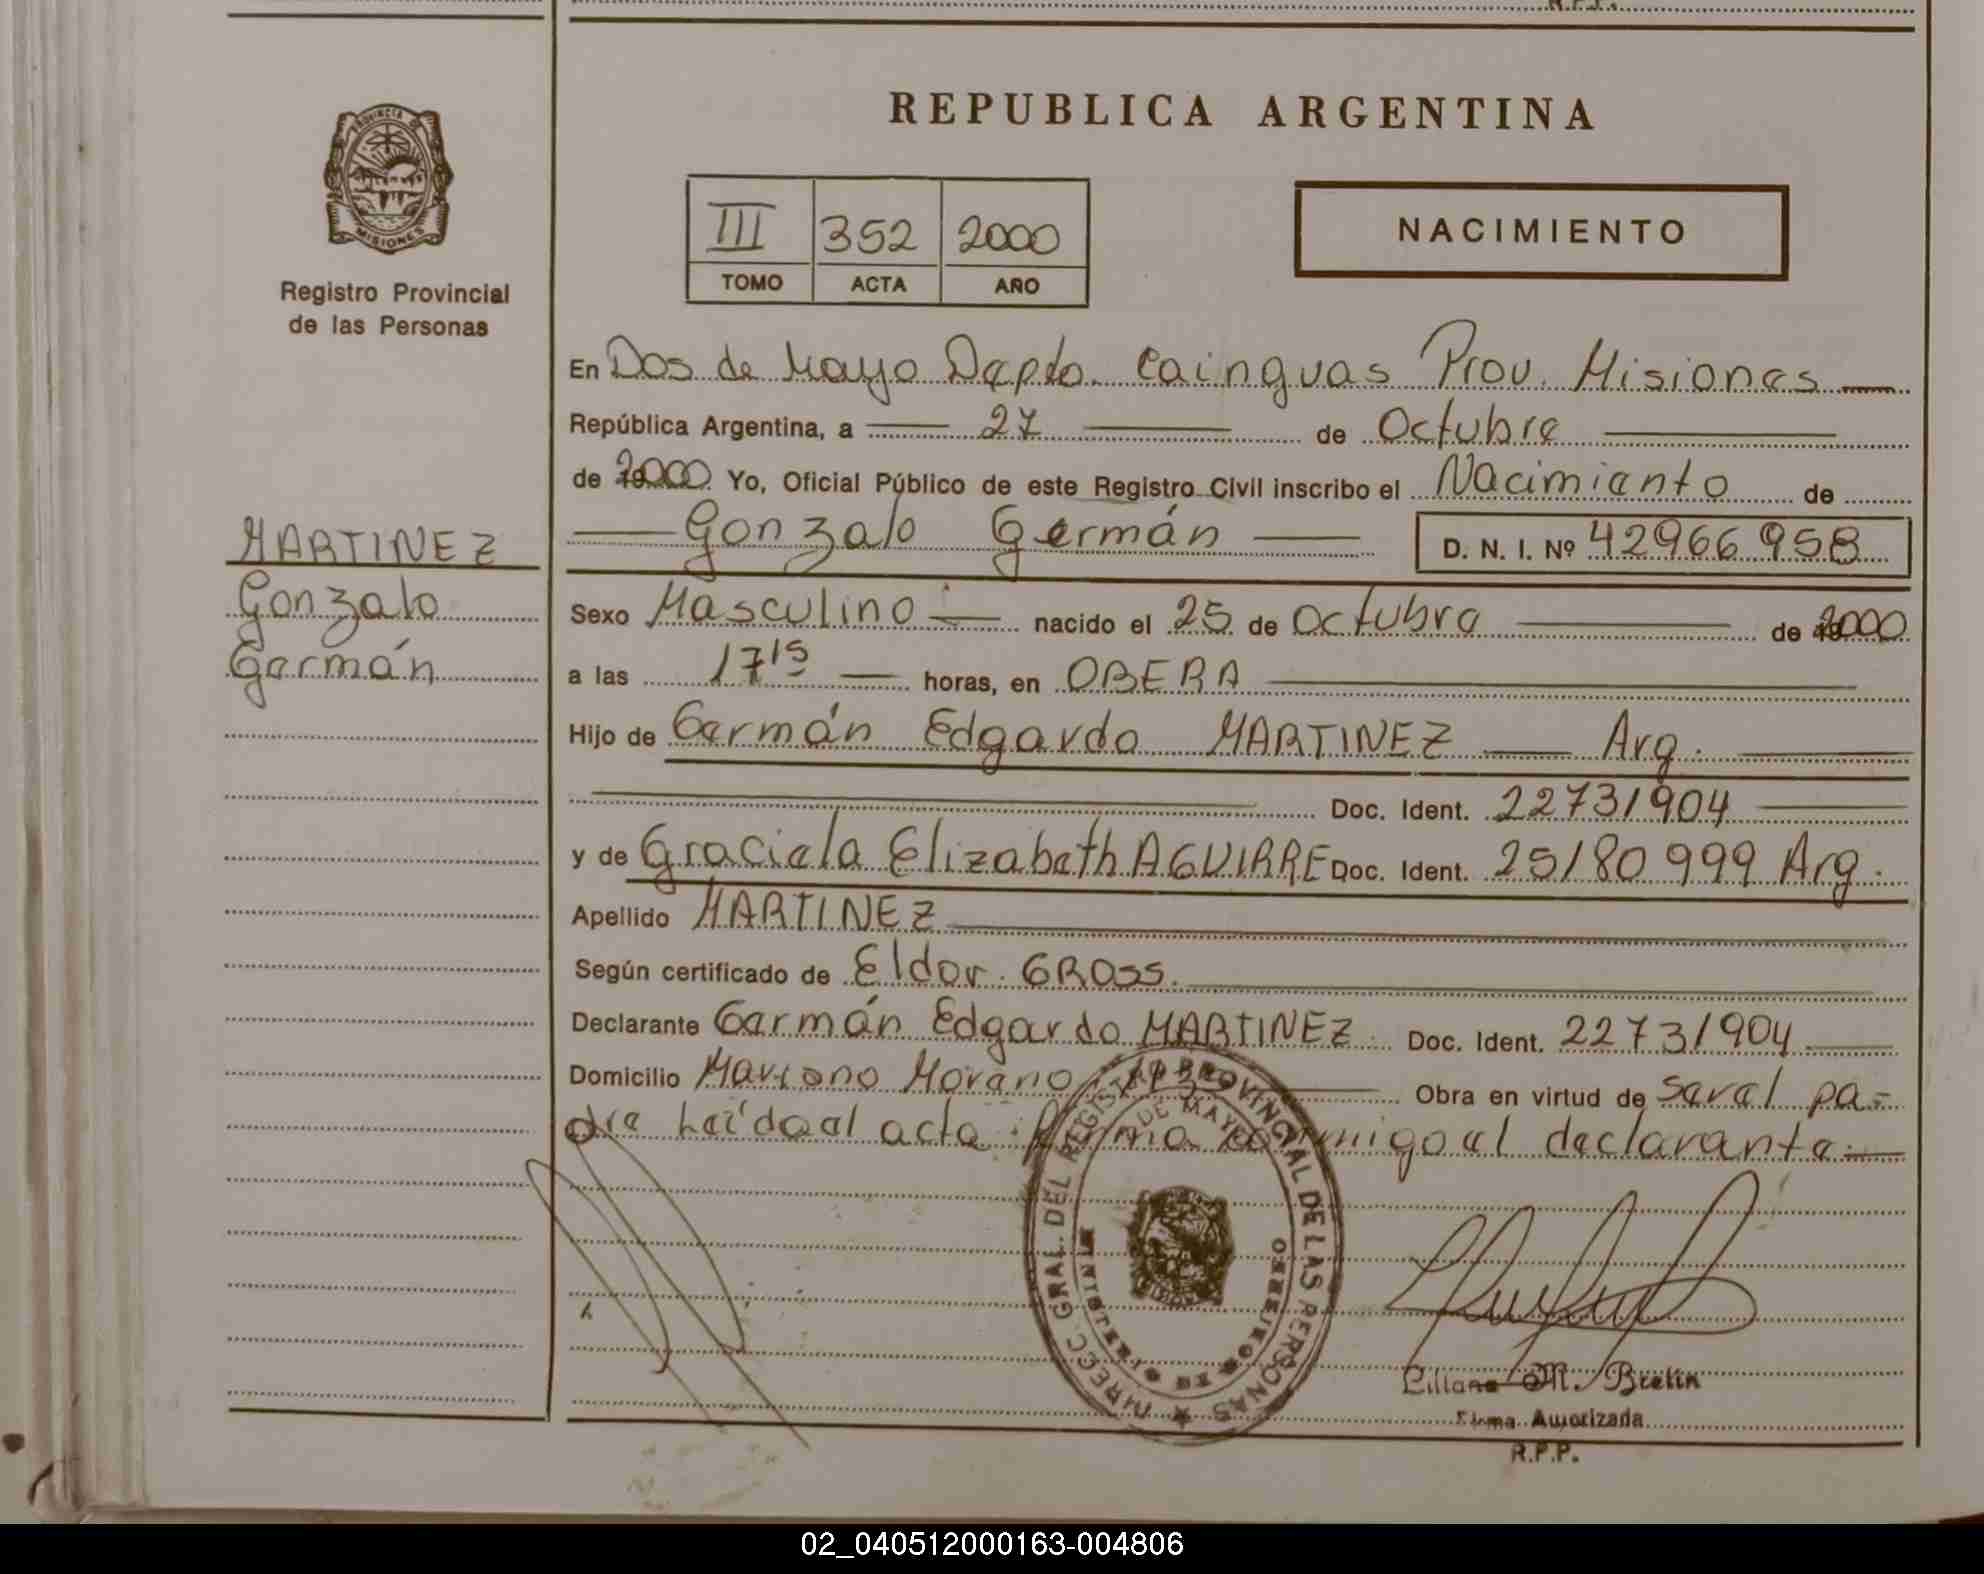 R.P.P.
REPUBLICA ARGENTINA
PROVINCIA DE
MISIONES
Registro Provincial
de las Personas
III 352 2000
TOMO ACTA AÑO
NACIMIENTO
En Dos de Mayo Depto. Cainguas Prov. Misiones
República Argentina, a 27 de Octubre
de 2000 Yo, Oficial Público de este Registro Civil inscribo el Nacimiento de
Gonzalo Germán D. N. I. Nº 42966958
MARTINEZ
Gonzalo
Germán
Sexo Masculino nacido el 25 de Octubre de 2000
a las 17 15 horas, en OBERA
Hijo de Germán Edgardo MARTINEZ Arg.
Doc. Ident. 22731904
y de Graciela Elizabeth AGUIRRE Doc. Ident. 25180999 Arg.
Apellido MARTINEZ
Según certificado de Eldor GROSS.
Declarante Germán Edgardo MARTINEZ. Doc. Ident. 22731904
Domicilio Mariano Moreno Obra en virtud de seral pa-
dre Leídaal acta firma conmigoel declarante
DIREC. GRAL. DEL REGISTRO PROVINCIAL DE LAS PERSONAS
DE MAYO
MINISTERIO DE GOBIERNO
Liliana M. Brelin
Firma Autorizada
R.P.P.
02_040512000163-004806